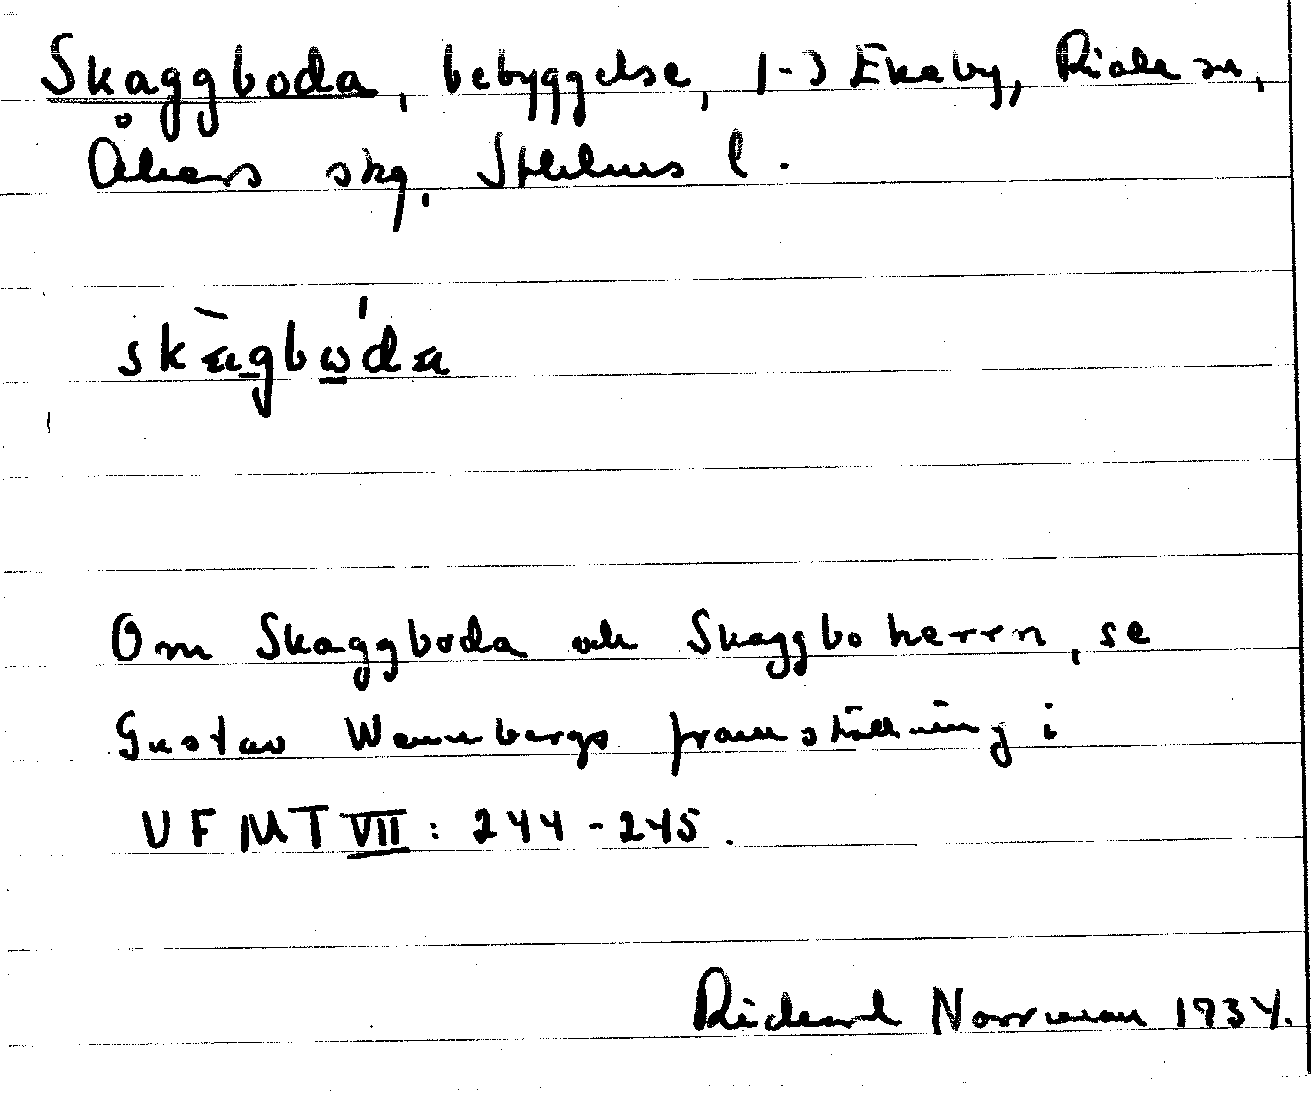 Skaggboda, bebyggelse, 1-3 Ekeby, Riala sn,
Åkers skg. Sthlms l.
skàgbo̲'da
Om Skaggboda och Skaggboherrn, se
Gustav Wennbergs framställning i
UFMT VII: 244-245.
Rickard Norrman 1934.